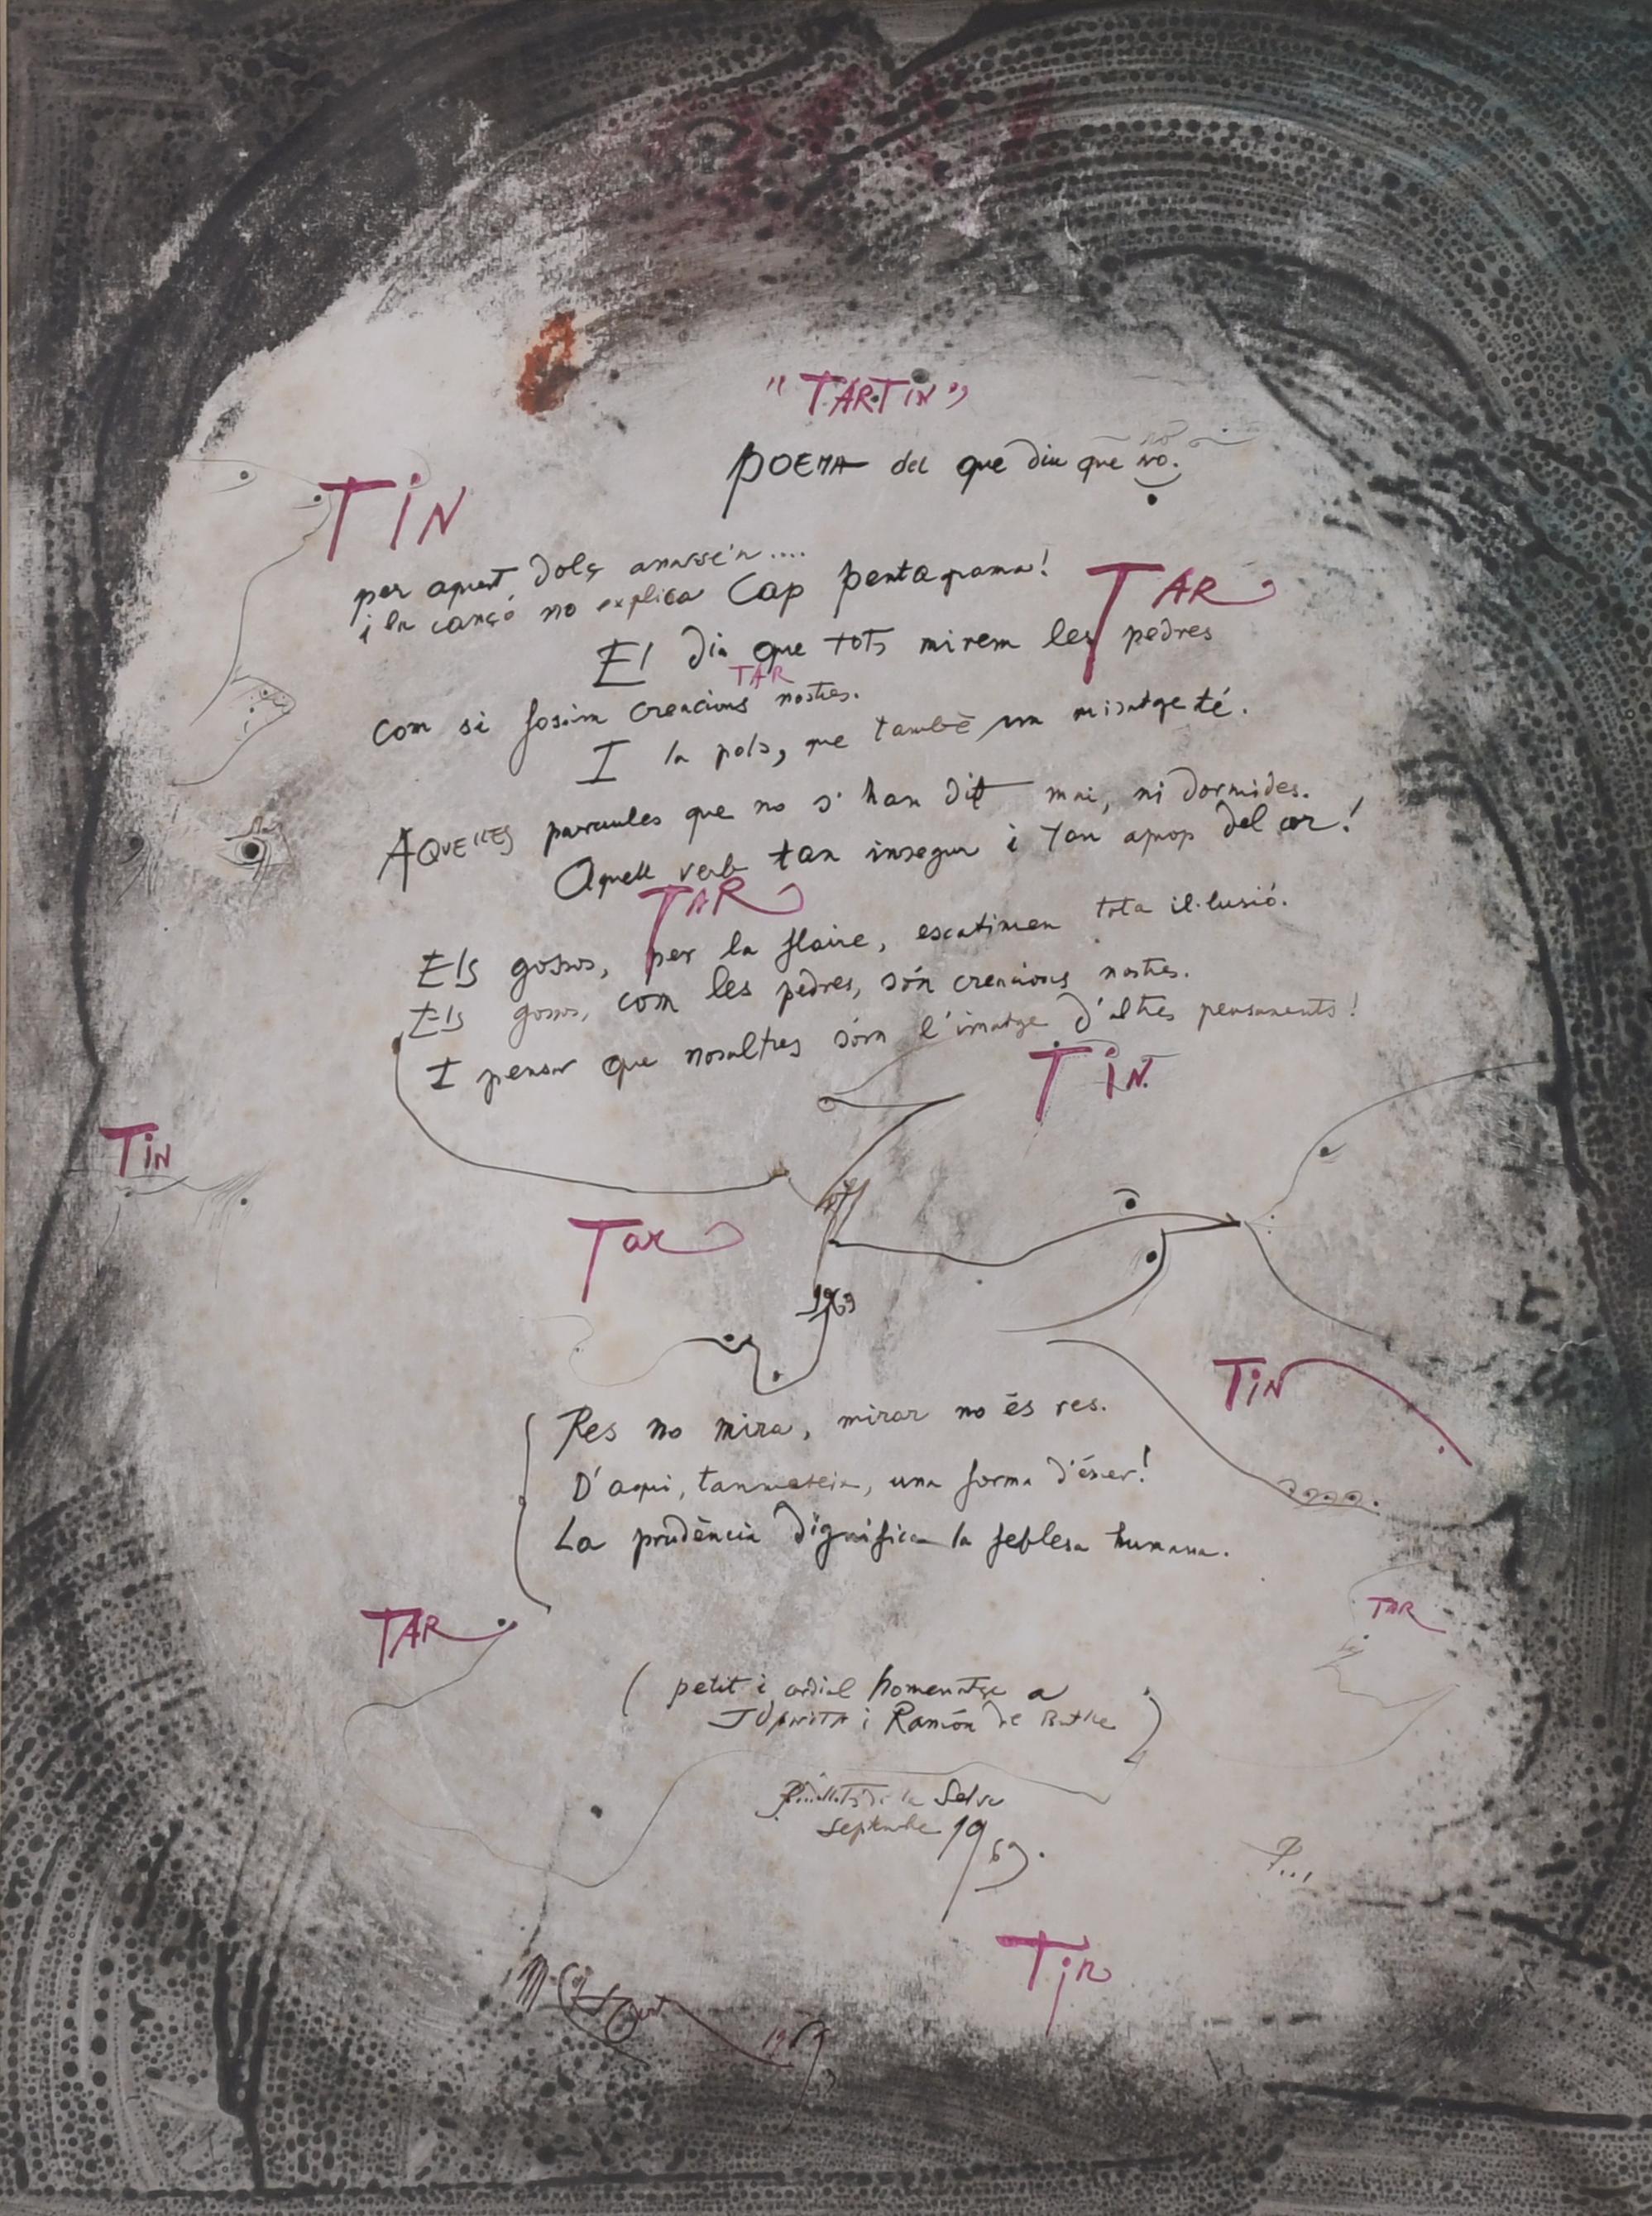 "TARTiN"
POEMA del que diu que no.
no
TiN
per aquest dolç anarsé'n....
i la cançó no explica Cap pentagrama!
TAR
El dia que tots mirem les pedres
TAR
com si fossim creacions nostres.
I la pols, que també un missatge té.
AQUELLES paraules que no s'han dit mai, ni dormides.
Aquell verb tan insegur i tan aprop del cor!
TAR
Els gossos, per la flaire, escatimen tota il·lusió.
Els gossos, com les pedres, són creacions nostres.
I pensar que nosaltres sóm l'imatge d'altres pensaments!
TiN
TiN
Tar
1969
TiN
Res no mira, mirar no és res.
D'aquí, tanmateix, una forma d'ésser!
La prudència dignifica la feblesa humana.
TAR
TAR
( petit i cordial homenatge a
JUANITA i Ramón de Batlle )
de la Selva
septembre 1969.
P...
Tin